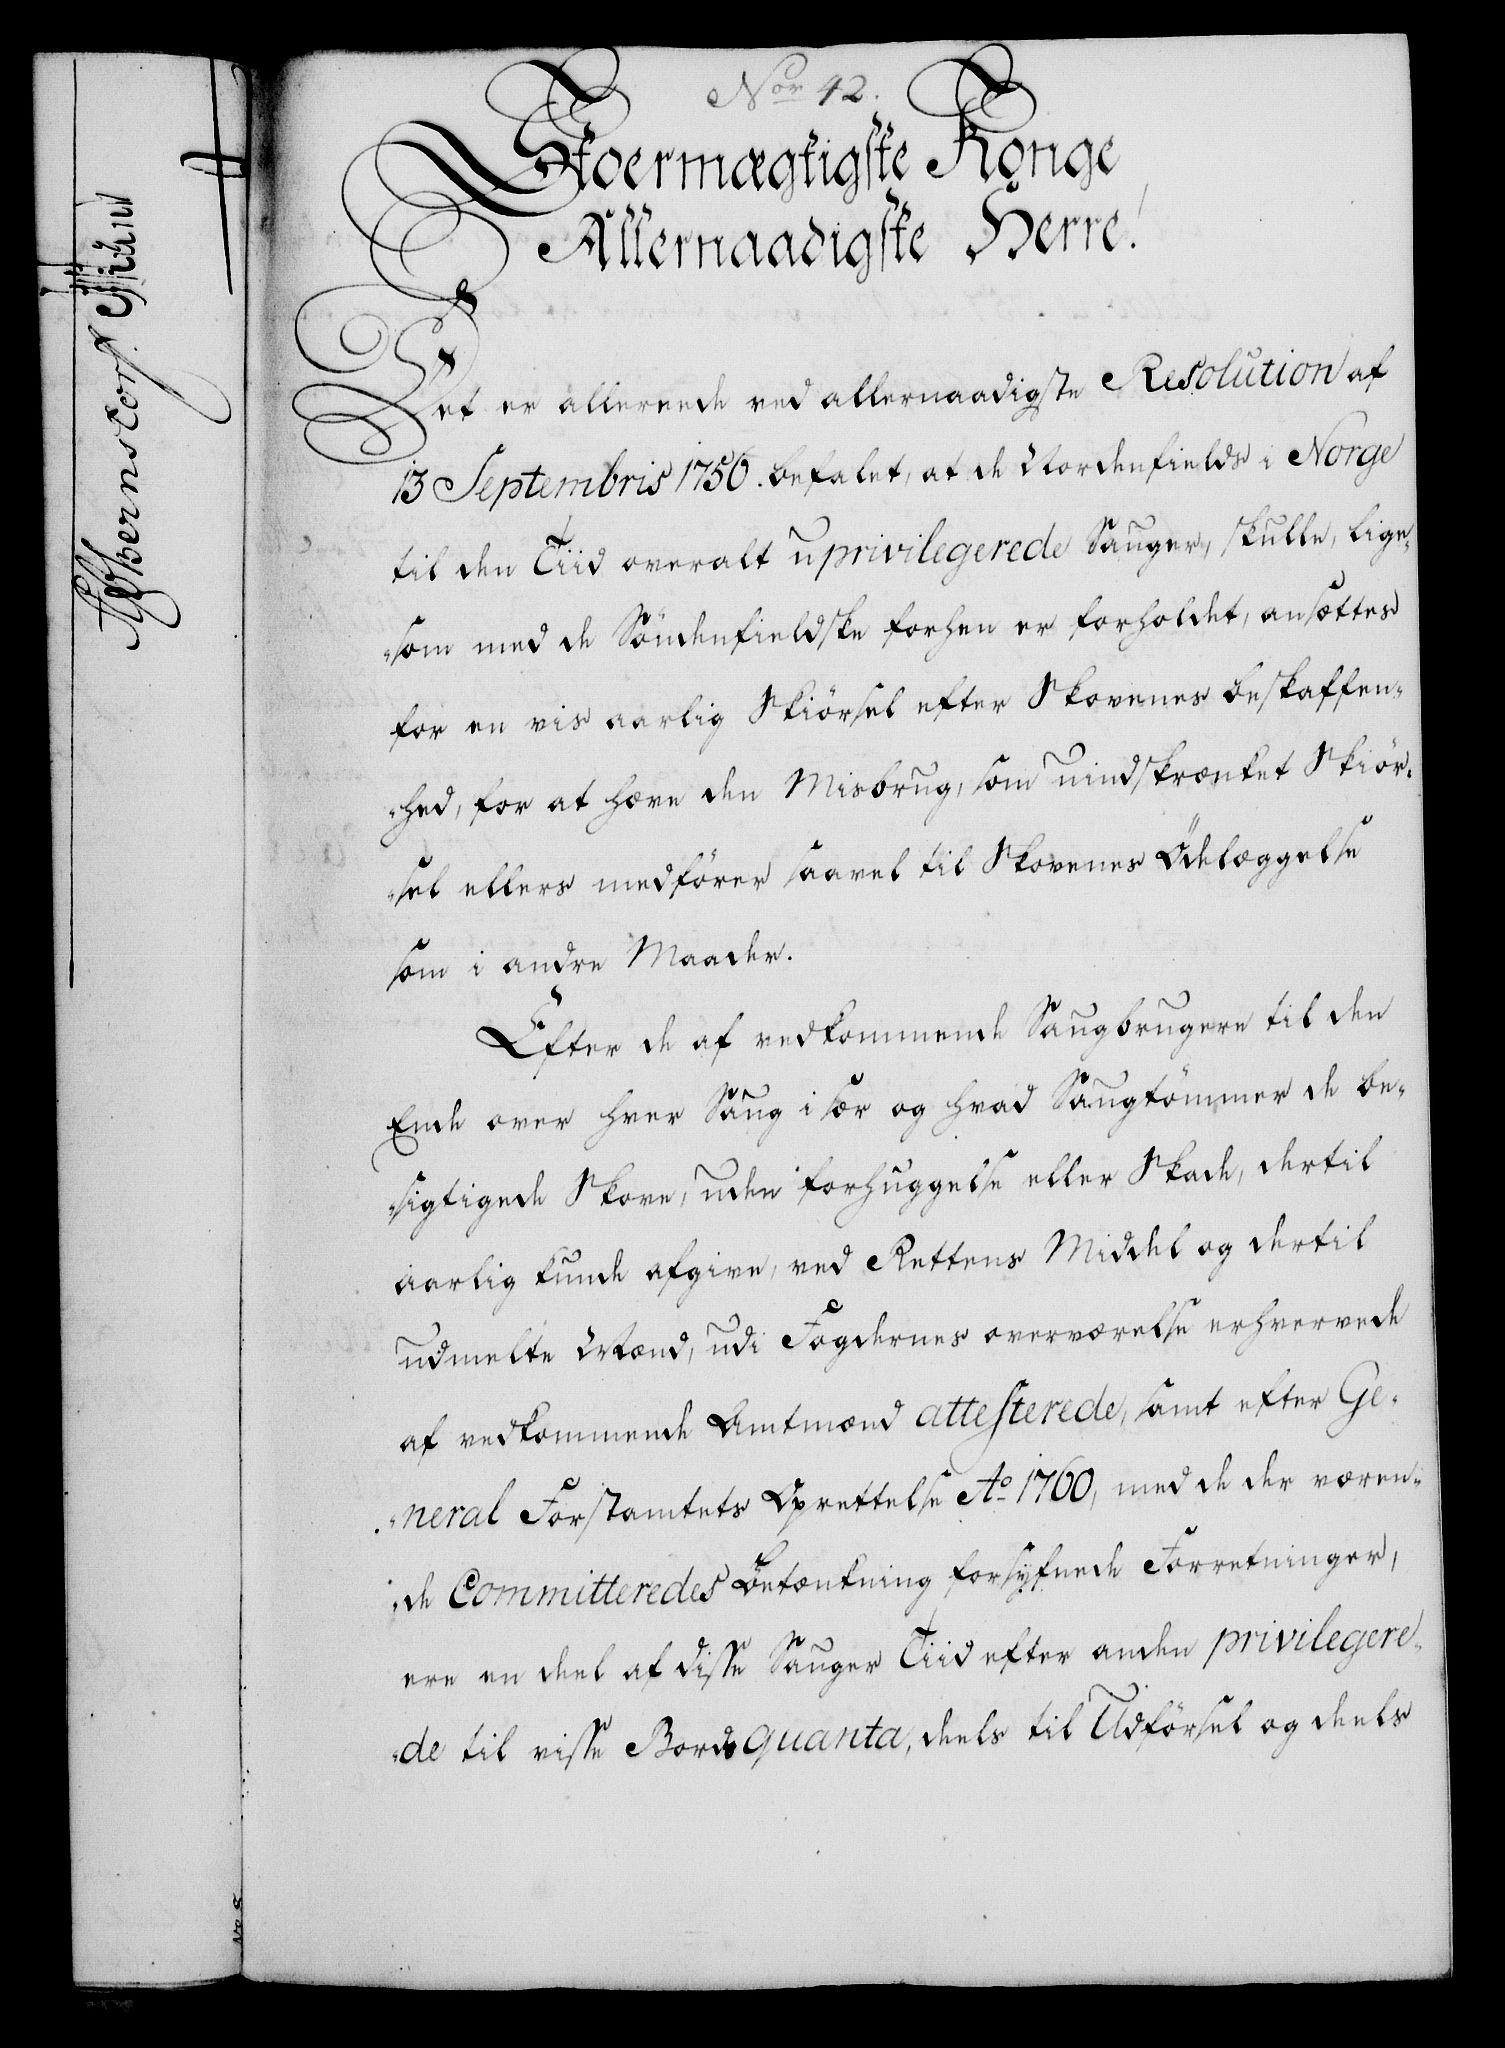 Nor 42.
Stoermægtigste Konge
Allernaadigste Herre!
Det er allereede ved allernaadigste Resolution af
13 Septembris 1756. befalet, at de Nordenfields i Norge
til den Tiid overalt uprivilegerede Sauger, skulle, lige-
-som med de Söndenfieldske forhen er forholdet, ansættes
for en vis aarlig Skiörsel efter Skovenes beskaffen-
-hed, for at hæve den Misbrug, som uindskrænket Skiör-
-sel ellers medförer saavel til Skovenes Ödelæggelse
som i andre Maader.
Efter de af vedkommende Saugbrugere til den
Ende over hver Saug i sær og hvad Saugtömmer de be-
-sigtigede Skove, uden forhuggelse eller Skade, dertil
aarlig kunde afgive, ved Rettens Middel og dertil
udmelte Mænd, udi Fogdernes overværelse erhvervede
af vedkommende Amtmænd attesterede, samt efter Ge-
-neral Forstamtets Oprettelse Ao 1760, med de der væren-
-de Committeredes Betænkning forsyfnede Forretninger,
ere en deel af disse Sauger Tiid efter anden privilegere-
-de til visse Bords quanta, deels til Udförsel og deels